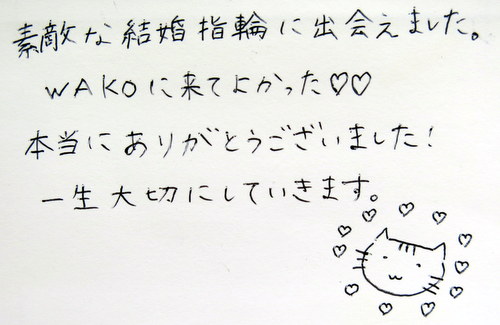 素敵な結婚指輪に出会えました。
WAKOに来てよかった♡♡
本当にありがとうございました!
一生大切にしていきます。